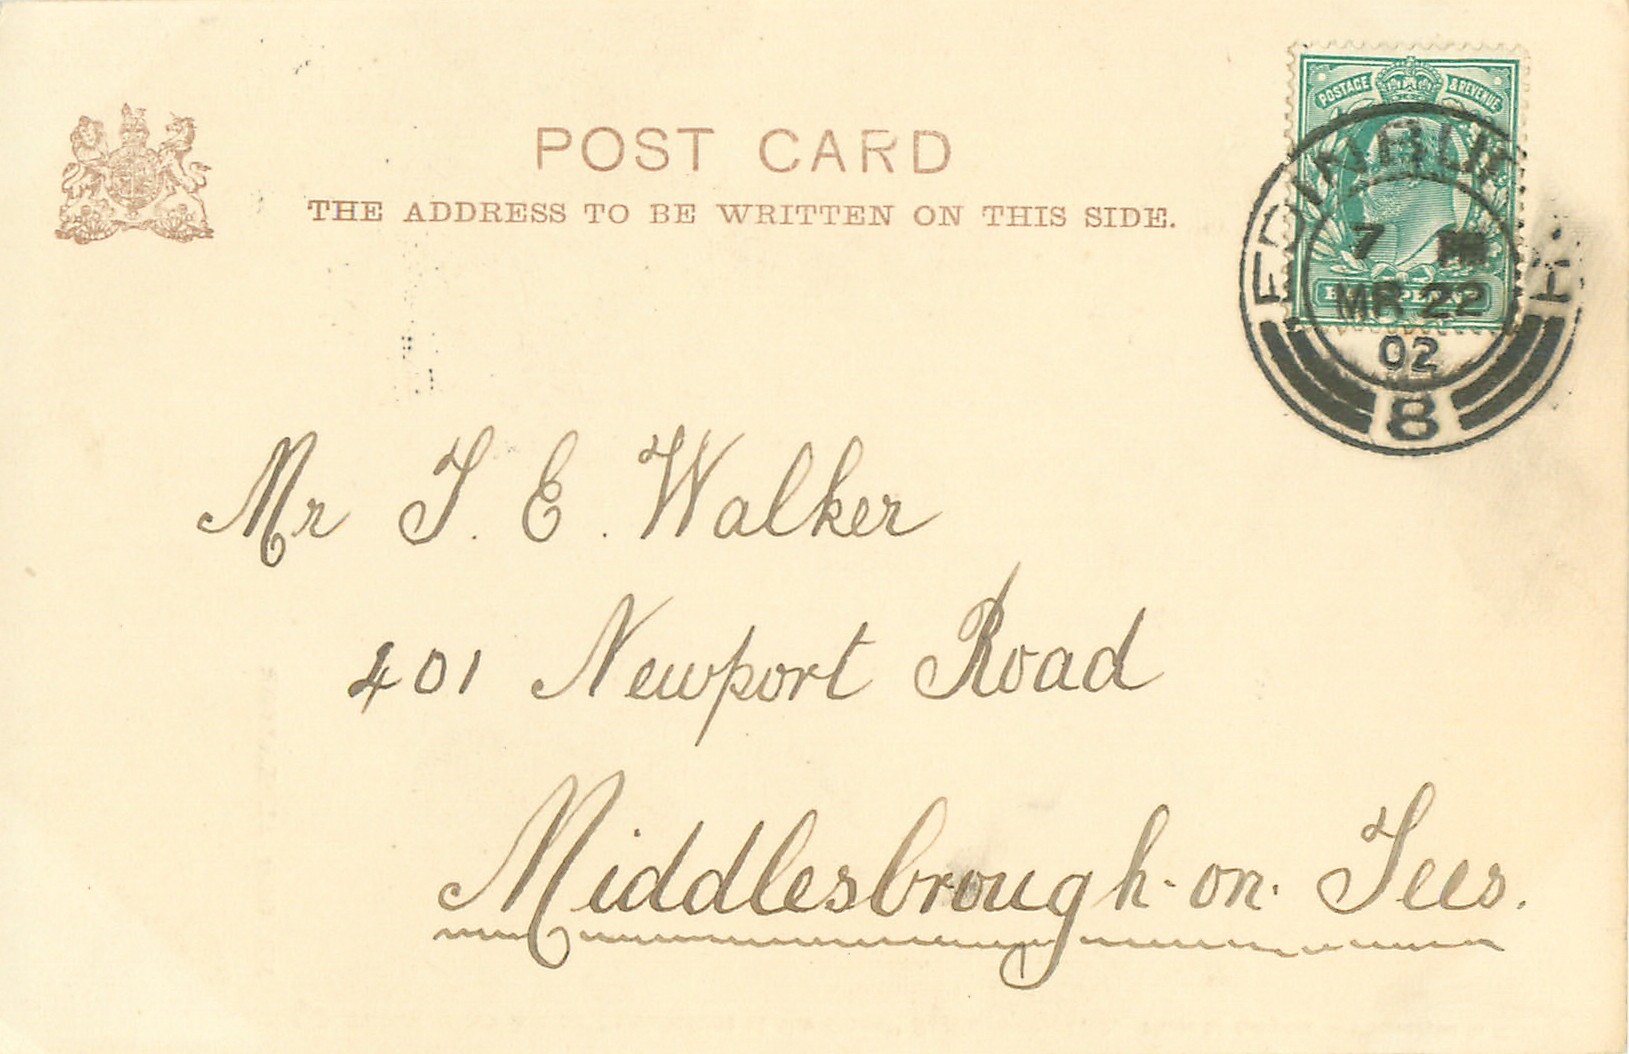 POST CARD
THE ADDRESS TO BE WRITTEN ON THIS SIDE.
POSTAGE & REVENUE
EDINBURGH
7 PM
MR 22
02
8
Mr T. E. Walker
401 Newport Road
Middlesbrough-on-Tees.